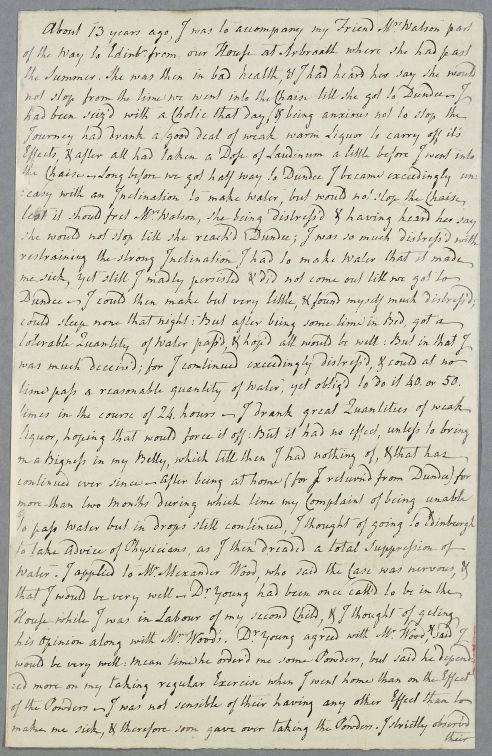 About 13 years ago, I was to accompany my Friend Mrs Watson part
of the way to Edinbr from our House at Arbroath where she had past
the Summer. She was then in bad health, & I had heard her say she would
not stop from the time we went into the Chaise till she got to Dundee — I
had been seiz'd with a Cholic that day, & being anxious not to stop the
Journey had drank a good deal of weak warm Liquor to carry off its
Effects, & after all had taken a Dose of Laudenum a little before I went into
the Chaise — Long before we got half way to Dundee I became exceedingly un=
=easy with an Inclination to make water, but would not stop the Chaise
lest it should fret Mrs Watson, she being distress'd & having heard her say
she would not stop till she reach'd Dundee; I was so much distress'd with
restraining the strong Inclination I had to make water that it made
me sick, yet still I madly persisted & did not come out till we got to
Dundee — I could then make but very little, & found myself much distress'd;
could sleep none that night: But after being some time in Bed, got a
tolerable Quantity of water pass'd, & hop'd all would be well: But in that I
was much deceiv'd; for I continued exceedingly distress'd, & could at no
time pass a reasonable quantity of water, yet oblig'd to do it 40. or 50.
times in the course of 24 hours — I drank great Quantities of weak
Liquor, hoping that would force it off: But it had no effect, unless to bring
on a Bigness in my Belly, which till then I had nothing of, & that has
continued ever since — After being at home (for I return'd from Dundee) for
more than two Months during which time my Complaint of being unable
to pass Water but in drops still continued, I thought of going to Edinburgh
to take Advice of Physicians, as I then dreaded a total Suppression of
Water. I applied to Mr Alexander Wood, who said the Case was nervous, &
that I would be very well — Dr Young had been once call'd to be in the
House while I was in Labour of my second Child, & I thought of geting
his Opinion along with Mr Wood's. Dr Young agreed with Mr Wood & said I
would be very well: mean time he order'd me some Powders, but said he depend=
=ed more on my taking regular Exercise when I went home than on the Effect
of the Powders — I was not sensible of their having any other Effect than to
make me sick, & therefore soon gave over taking the Powders. I strictly observed
their